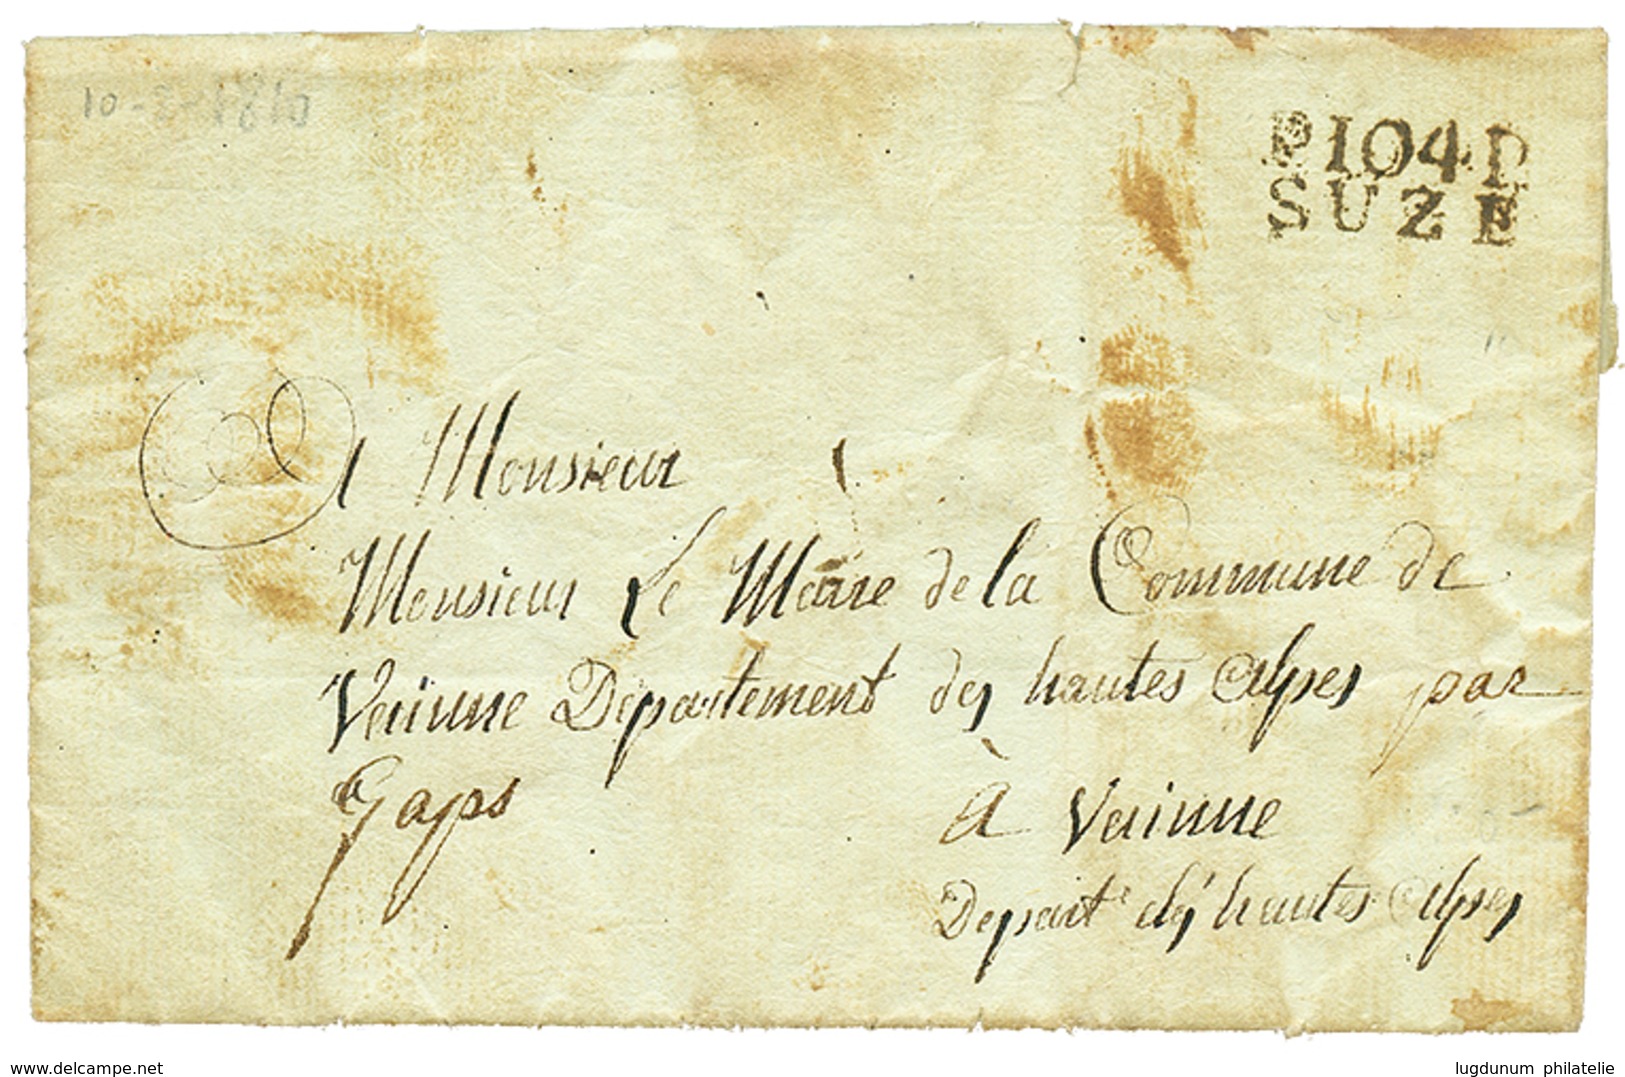 10-3-1810
P104P
SUZE
A Monsieur
Monsieur Le Maire de la Commune de
Veiinne Departement des hautes Alpes par
Gaps
à Veiinne
Depart.t des hautes Alpes
www.delcampe.net
lugdunum philatelie